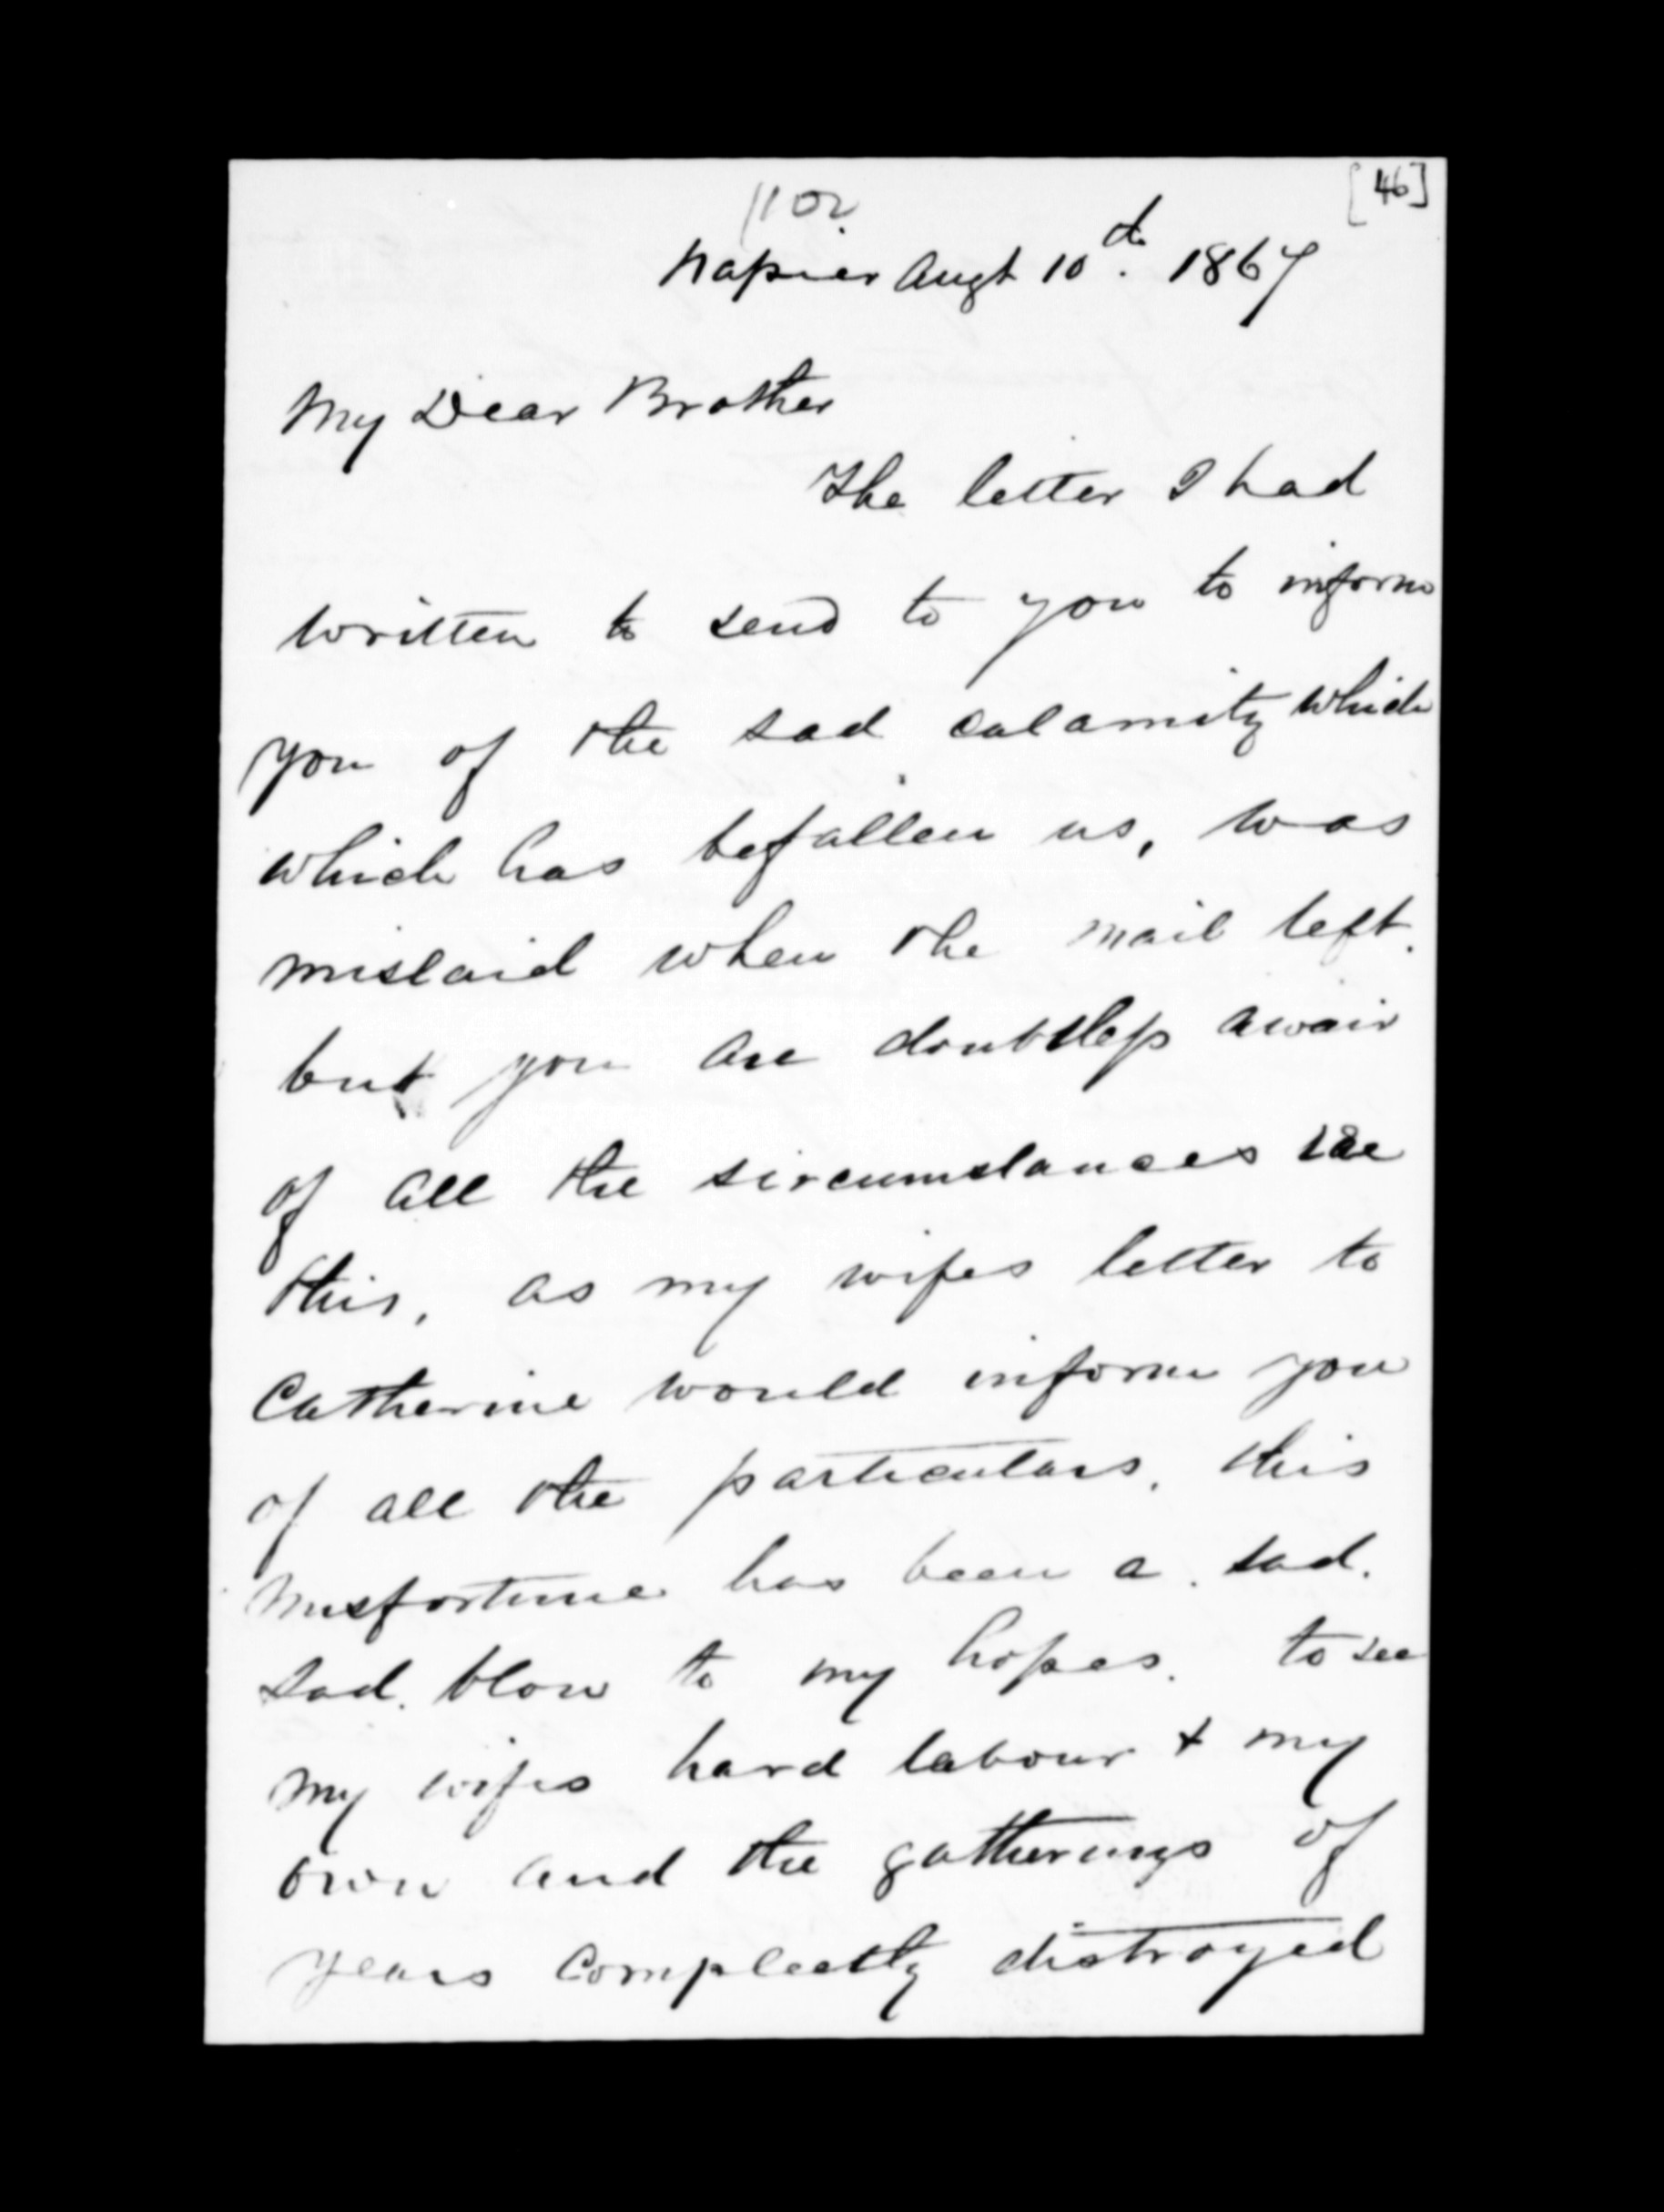 [46]
Napier Augt 10th. 1867
My Dear Brother
The letter I had
written to send to you to inform
you of the sad calamity which
which has befallen us, was
mislaid when the mail left.
but you are doubtless awair
of all the sircumstances
this, as my wifes letter to
Catherine would inform you
of all the particulars, this
misfortune has been a sad.
sad. blow to my hopes. to see
my wifes hard labour & my
own and the gatherings of
years compleetly distroyed